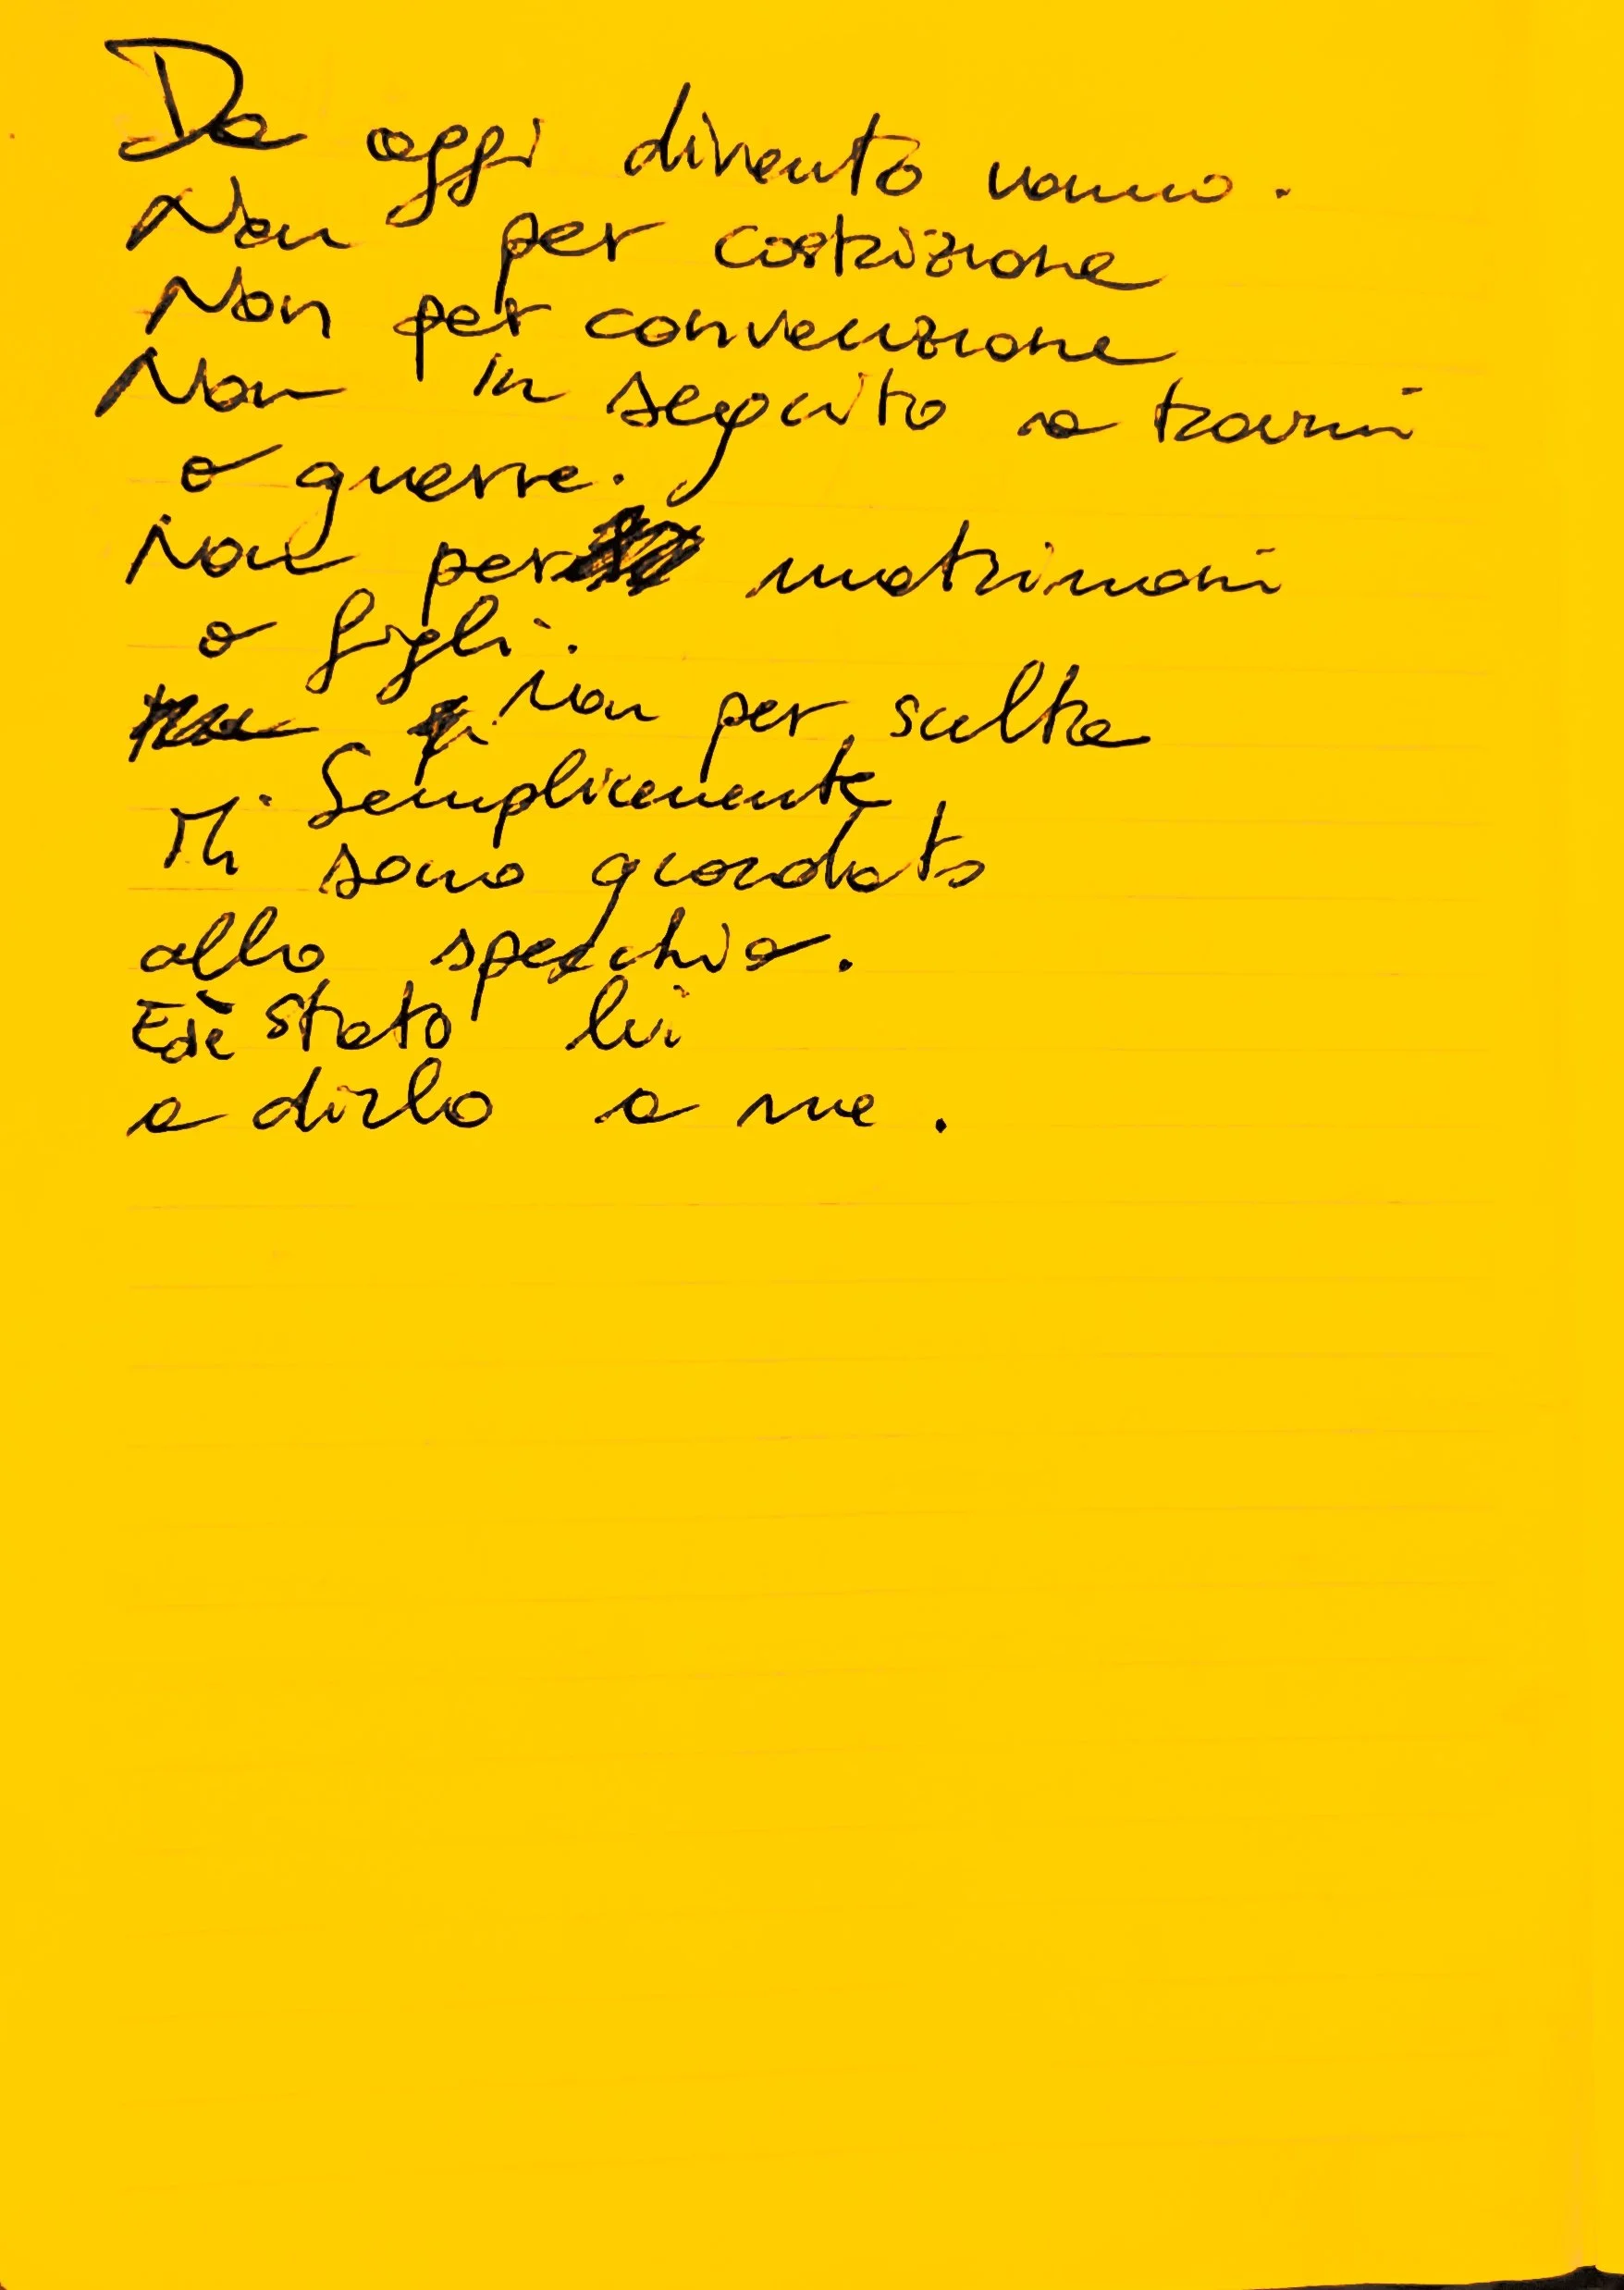 Da oggi divento uomo.
Non per costrizione
Non per convenzione
Non in seguito a traumi
o guerre.
Non per matrimoni
o figli.
Non per scelta
Semplicemente
Mi sono guardato
allo specchio.
Ed è stato lui
a dirlo a me.